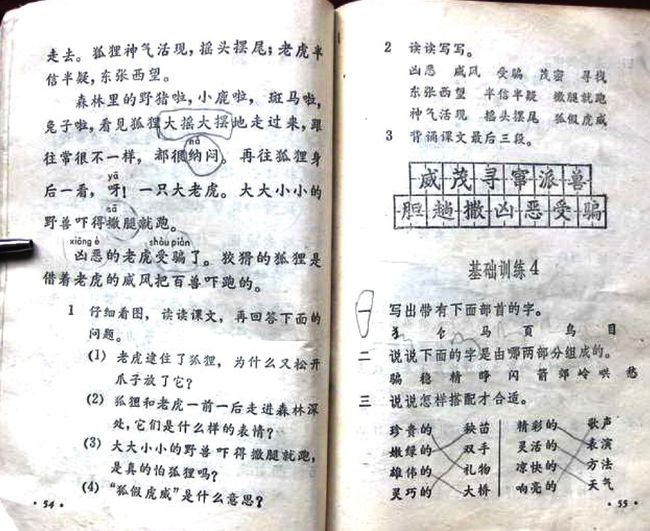 走去。狐狸神气活现，摇头摆尾；老虎半
信半疑，东张西望。
森林里的野猪啦，小鹿啦，斑马啦，
兔子啦，看见狐狸大摇大摆地走过来，跟
nà
往常很不一样，都很纳闷。再往狐狸身
yā
后一看，呀！一只大老虎。大大小小的
sā
野兽吓得撒腿就跑。
xiōng è shòu piàn
凶恶的老虎受骗了。狡猾的狐狸是
借着老虎的威风把百兽吓跑的。
1 仔细看图，读读课文，再回答下面的
问题。
(1) 老虎逮住了狐狸，为什么又松开
爪子放了它？
(2) 狐狸和老虎一前一后走进森林深
处，它们是什么样的表情？
(3) 大大小小的野兽吓得撒腿就跑，
是真的怕狐狸吗？
(4) “狐假虎威”是什么意思？
·54·
2 读读写写。
凶恶 威风 受骗 茂密 寻找
东张西望 半信半疑 撒腿就跑
神气活现 摇头摆尾 狐假虎威
3 背诵课文最后三段。
威茂寻窜派兽
胆趟撒凶恶受骗
基础训练4
一 写出带有下面部首的字。
犭 饣 马 页 鸟 目
二 说说下面的字是由哪两部分组成的。
骗 稳 精 睁 闪 箭 郊 岭 哄 愁
三 说说怎样搭配才合适。
珍贵的 秧苗 精彩的 歌声
嫩绿的 双手 灵活的 表演
雄伟的 礼物 凉快的 方法
灵巧的 大桥 响亮的 天气
·55·